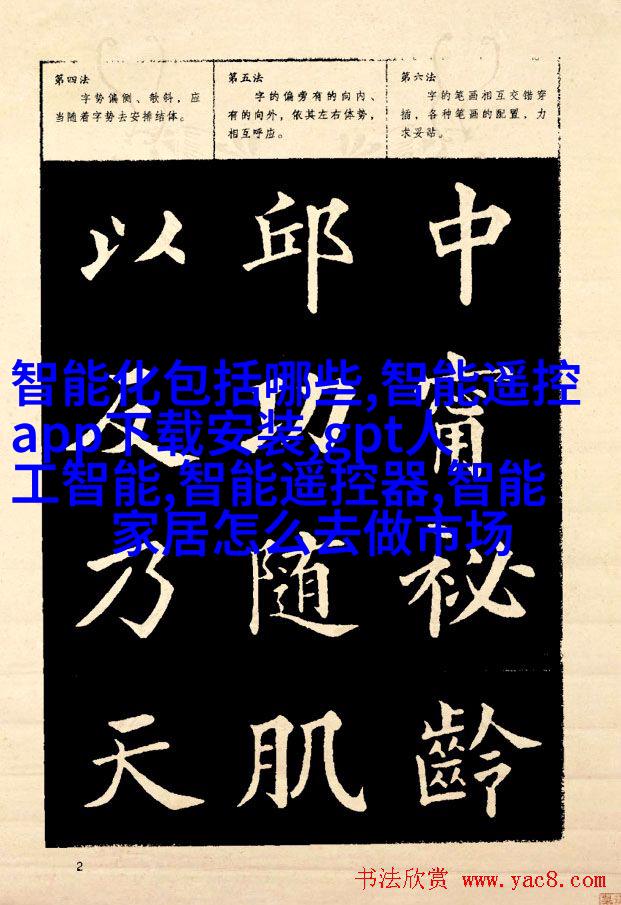 第四法
字势偏侧、欹斜，应
当随着字势去安排结体。
第五法
字的偏旁有的向内、
有的向外，依其左右体势，
相互呼应。
第六法
字的笔画相互交错穿
插，各种笔画的配置，力
求妥贴。
以 邱 中
及 功
乃 随 秘
天 肌 齡
智能化包括哪些,智能遥控
app下载安装,gpt人
工智能,智能遥控器,智能
家居怎么去做市场
2
书法欣赏 www.yac8.com